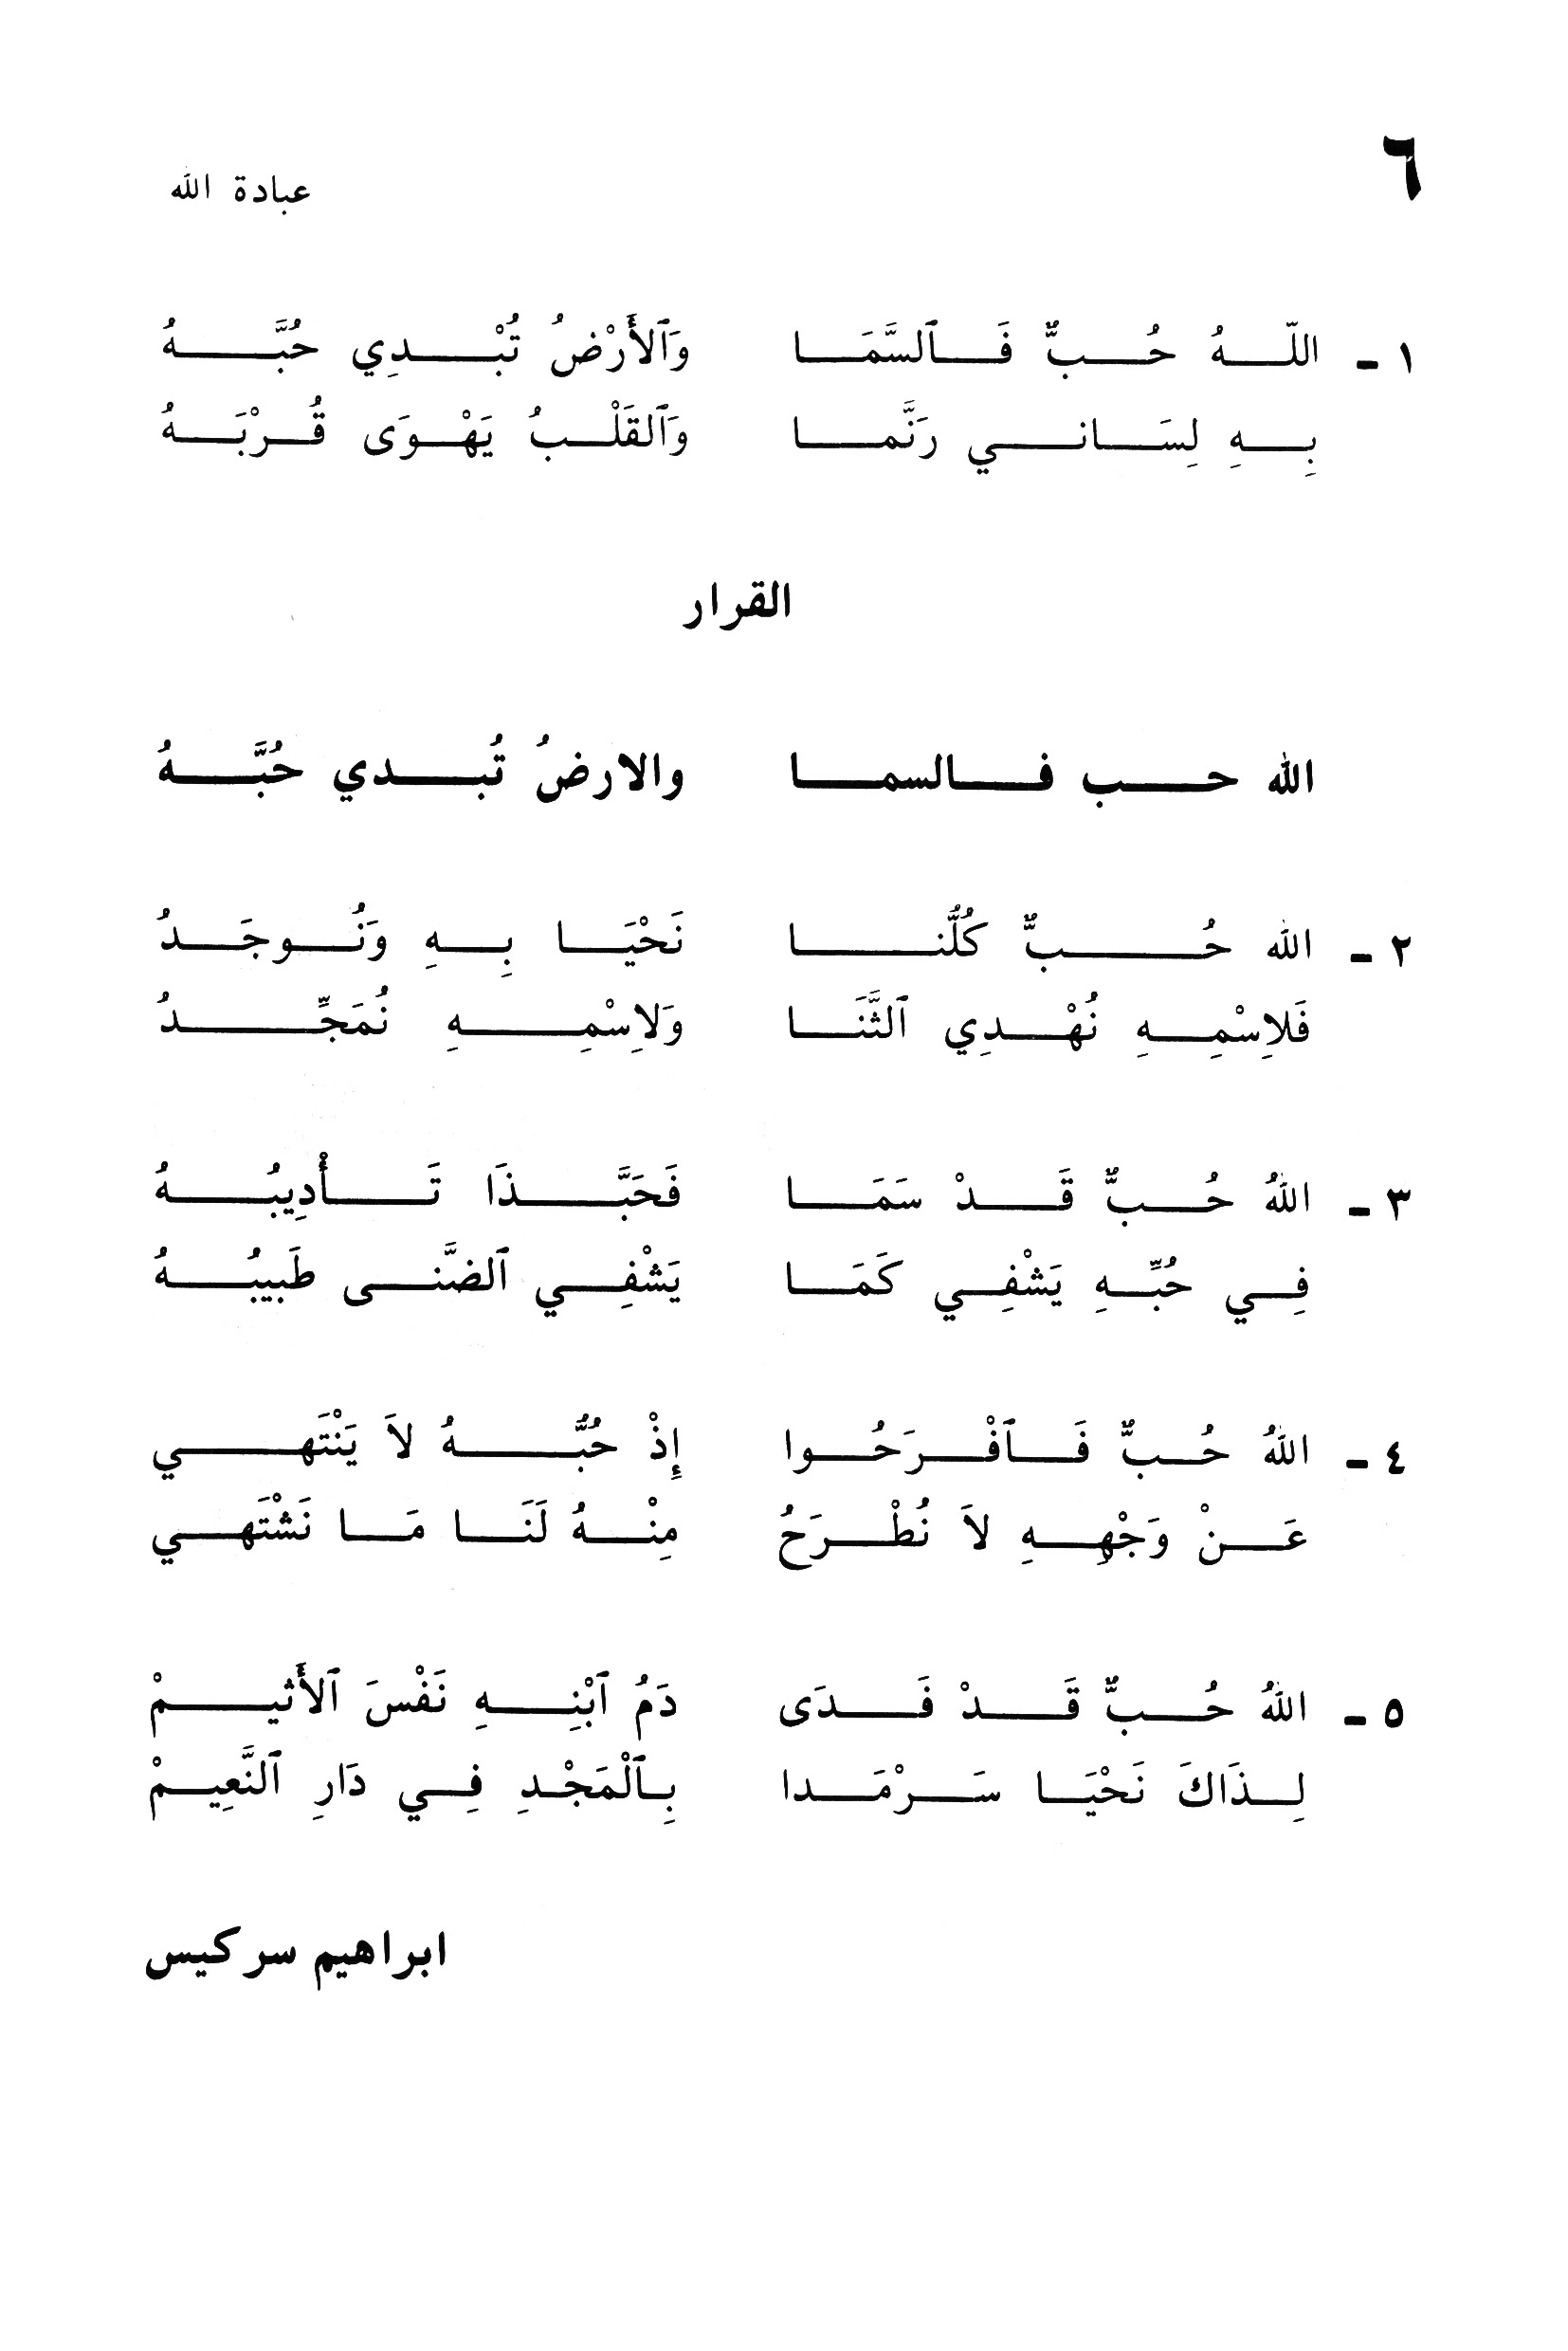 ٦
عبادة الله
١ - اللّهُ حُبٌّ فَٱلسَّمَا وَٱلأَرْضُ تُبْدِي حُبَّهُ
بِهِ لِسَانِي رَنَّما وَٱلقَلْبُ يَهْوَى قُرْبَهُ
القرار
الله حب فالسما والارضُ تُبدي حُبَّهُ
٢ - الله حُبٌّ كُلُّنا نَحْيَا بِهِ وَنُوجَدُ
فَلاِسْمِهِ نُهْدِي ٱلثَّنَا وَلاِسْمِهِ نُمَجِّدُ
٣ - اللهُ حُبٌّ قَدْ سَمَا فَحَبَّذَا تَأْدِيبُهُ
فِي حُبِّهِ يَشْفِي كَمَا يَشْفِي ٱلضَّنى طَبيبُهُ
٤ - اللهُ حُبٌّ فَٱفْرَحُوا إِذْ حُبُّهُ لاَ يَنْتَهِي
عَنْ وَجْهِهِ لاَ نُطْرَحُ مِنْهُ لَنَا مَا نَشْتَهي
٥ - اللهُ حُبٌّ قَدْ فَدَى دَمُ ٱبْنِهِ نَفْسَ ٱلأَثيمْ
لِذَاكَ نَحْيَا سَرْمَدا بِٱلْمَجْدِ فِي دَارِ ٱلنَّعِيمْ
ابراهيم سركيس